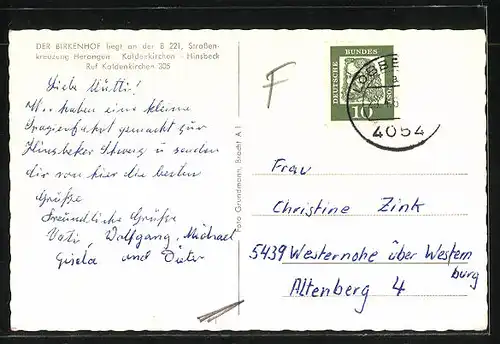 DER BIRKENHOF liegt an der B 221, Straßen-
kreuzung Herongen Kaldenkirchen - Hinsbeck
Ruf Kaldenkirchen 305
Liebe Mutti!
Wir haben eine kleine
Spazierfahrt gemacht zur
Hinsbeker Schweiz u senden
dir von hier die besten
Grüße
Freundliche Grüße
Vati, Wolfgang, Michael
Gisela und Dieter
Foto Grundmann, Bracht A 1
F
DEUTSCHE BUNDESPOST
10
LOBBE
4054
Frau
Christine Zink
5439 Westernohe über Western
burg
Altenberg 4